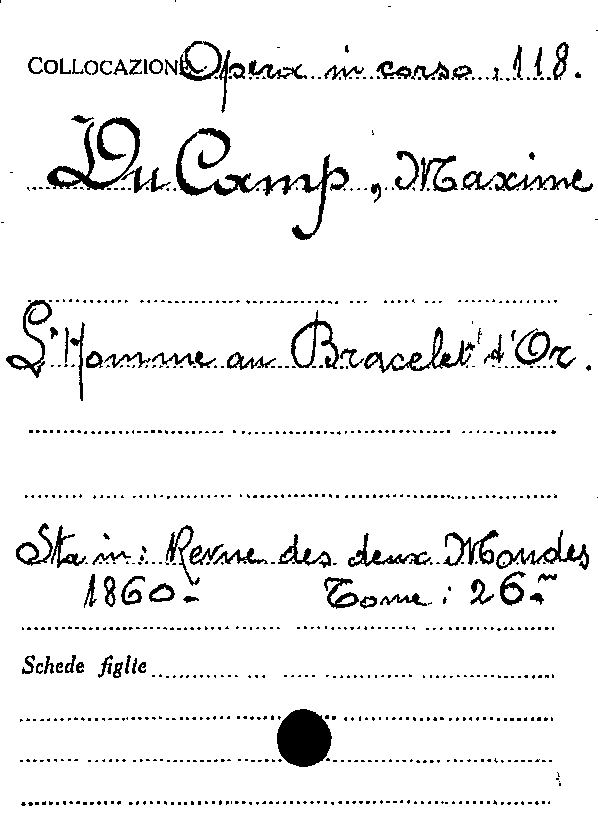 COLLOCAZIONE Opera in corso, 118.
Du Camp, Maxime
L'Homme au Bracelet d'Or.
Sta in: Revue des deux Mondes
1860 Tome: 26
Schede figlie